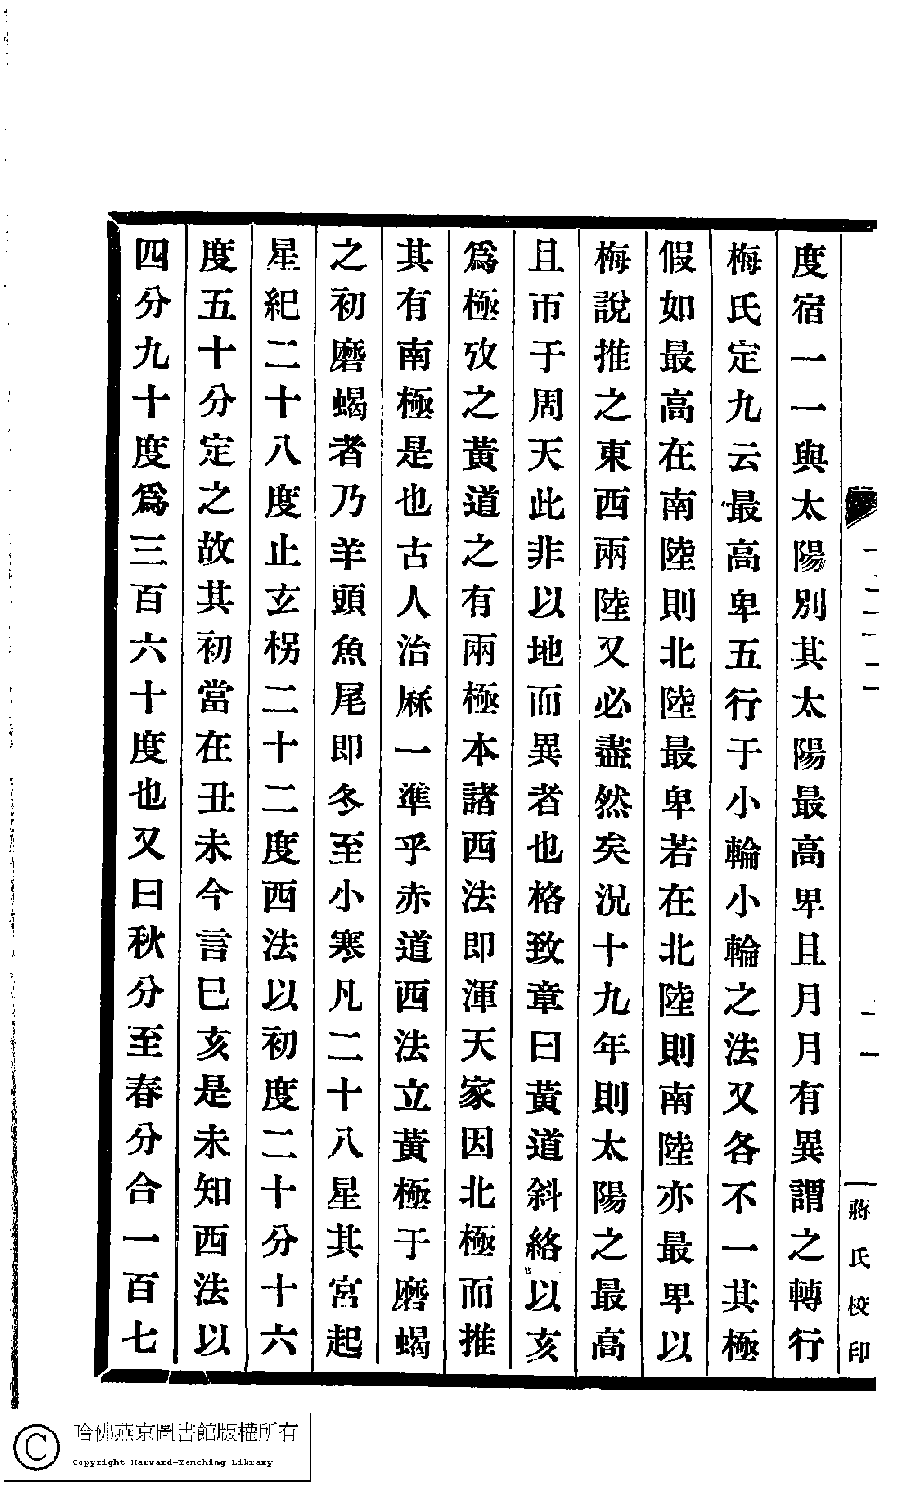 度宿一一與太陽別其太陽最高卑且月月有異謂之轉行
梅氏定九云最高卑五行于小輪小輪之法又各不一其極
假如最高在南陸則北陸最卑若在北陸則南陸亦最卑以
梅說推之東西兩陸又必盡然矣況十九年則太陽之最高
且帀于周天此非以地而異者也格致章曰黃道斜絡以亥
爲極攷之黃道之有兩極本諸西法即渾天家因北極而推
其有南極是也古人治厤一準乎赤道西法立黃極于磨蝎
之初磨蝎者乃羊頭魚尾即冬至小寒凡二十八星其宮起
星紀二十八度止玄枵二十二度西法以初度二十分十六
度五十分定之故其初當在丑未今言巳亥是未知西法以
四分九十度爲三百六十度也又曰秋分至春分合一百七
蔣氏校印
哈佛燕京圖書館版權所有
Copyright Harvard-Yenching Library